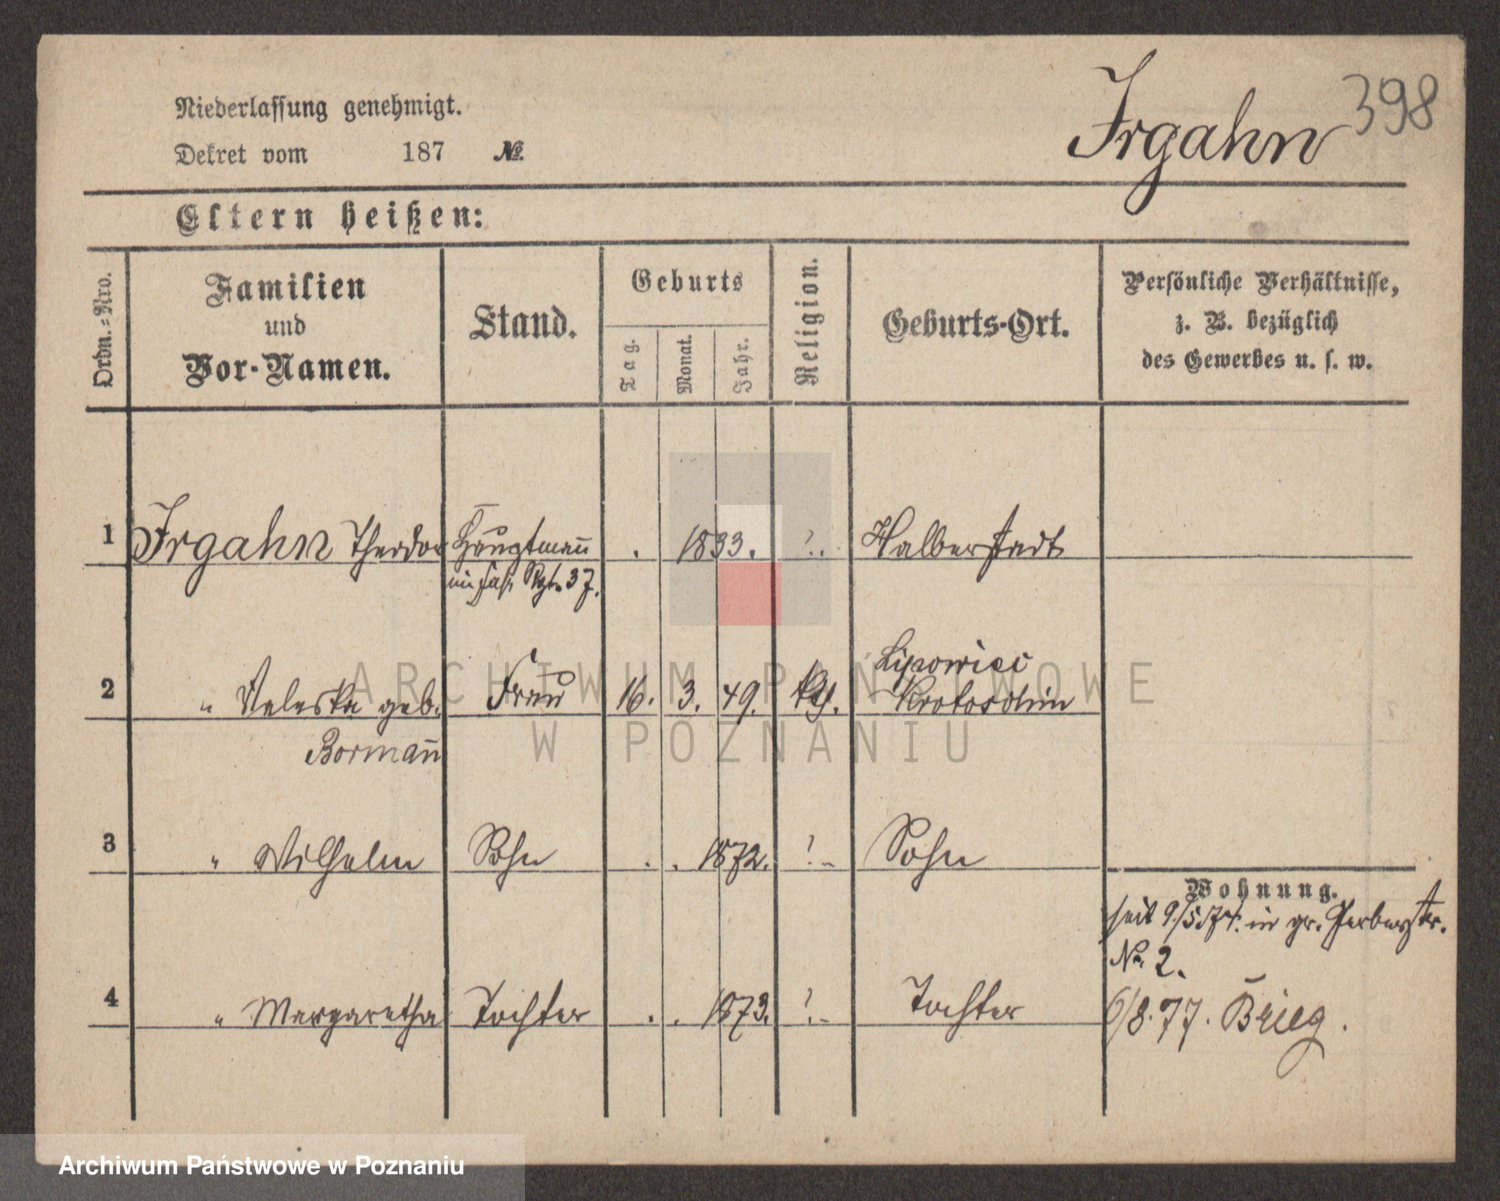 Irgahn 398
Niederlassung genehmigt.
Dekret vom 187 №
Eltern heißen:
Ordn.-Nro.
Familien
und
Vor-Namen.
Stand.
Geburts
Tag.
Monat.
Jahr.
Religion.
Geburts-Ort.
Persönliche Verhältnisse,
z. B. bezüglich
des Gewerbes u. s. w.
1 Irgahn Theodor Hauptmann . 1833. ?. Halberstadt
im Rgt. 37.
Lipowiec
2 " Valeska geb. Frau 16. 3. 49. Krotoschin
Bormann
3 " Wilhelm Sohn . . 1872. ? Sohn
Wohnung.
seit 9/5.74. in gr. Gerberstr.
No. 2.
4 " Margaretha Tochter . . 1873. ? Tochter
6/8.77. Brieg.
ARCHIWUM PAŃSTWOWE
W POZNANIU
Archiwum Państwowe w Poznaniu